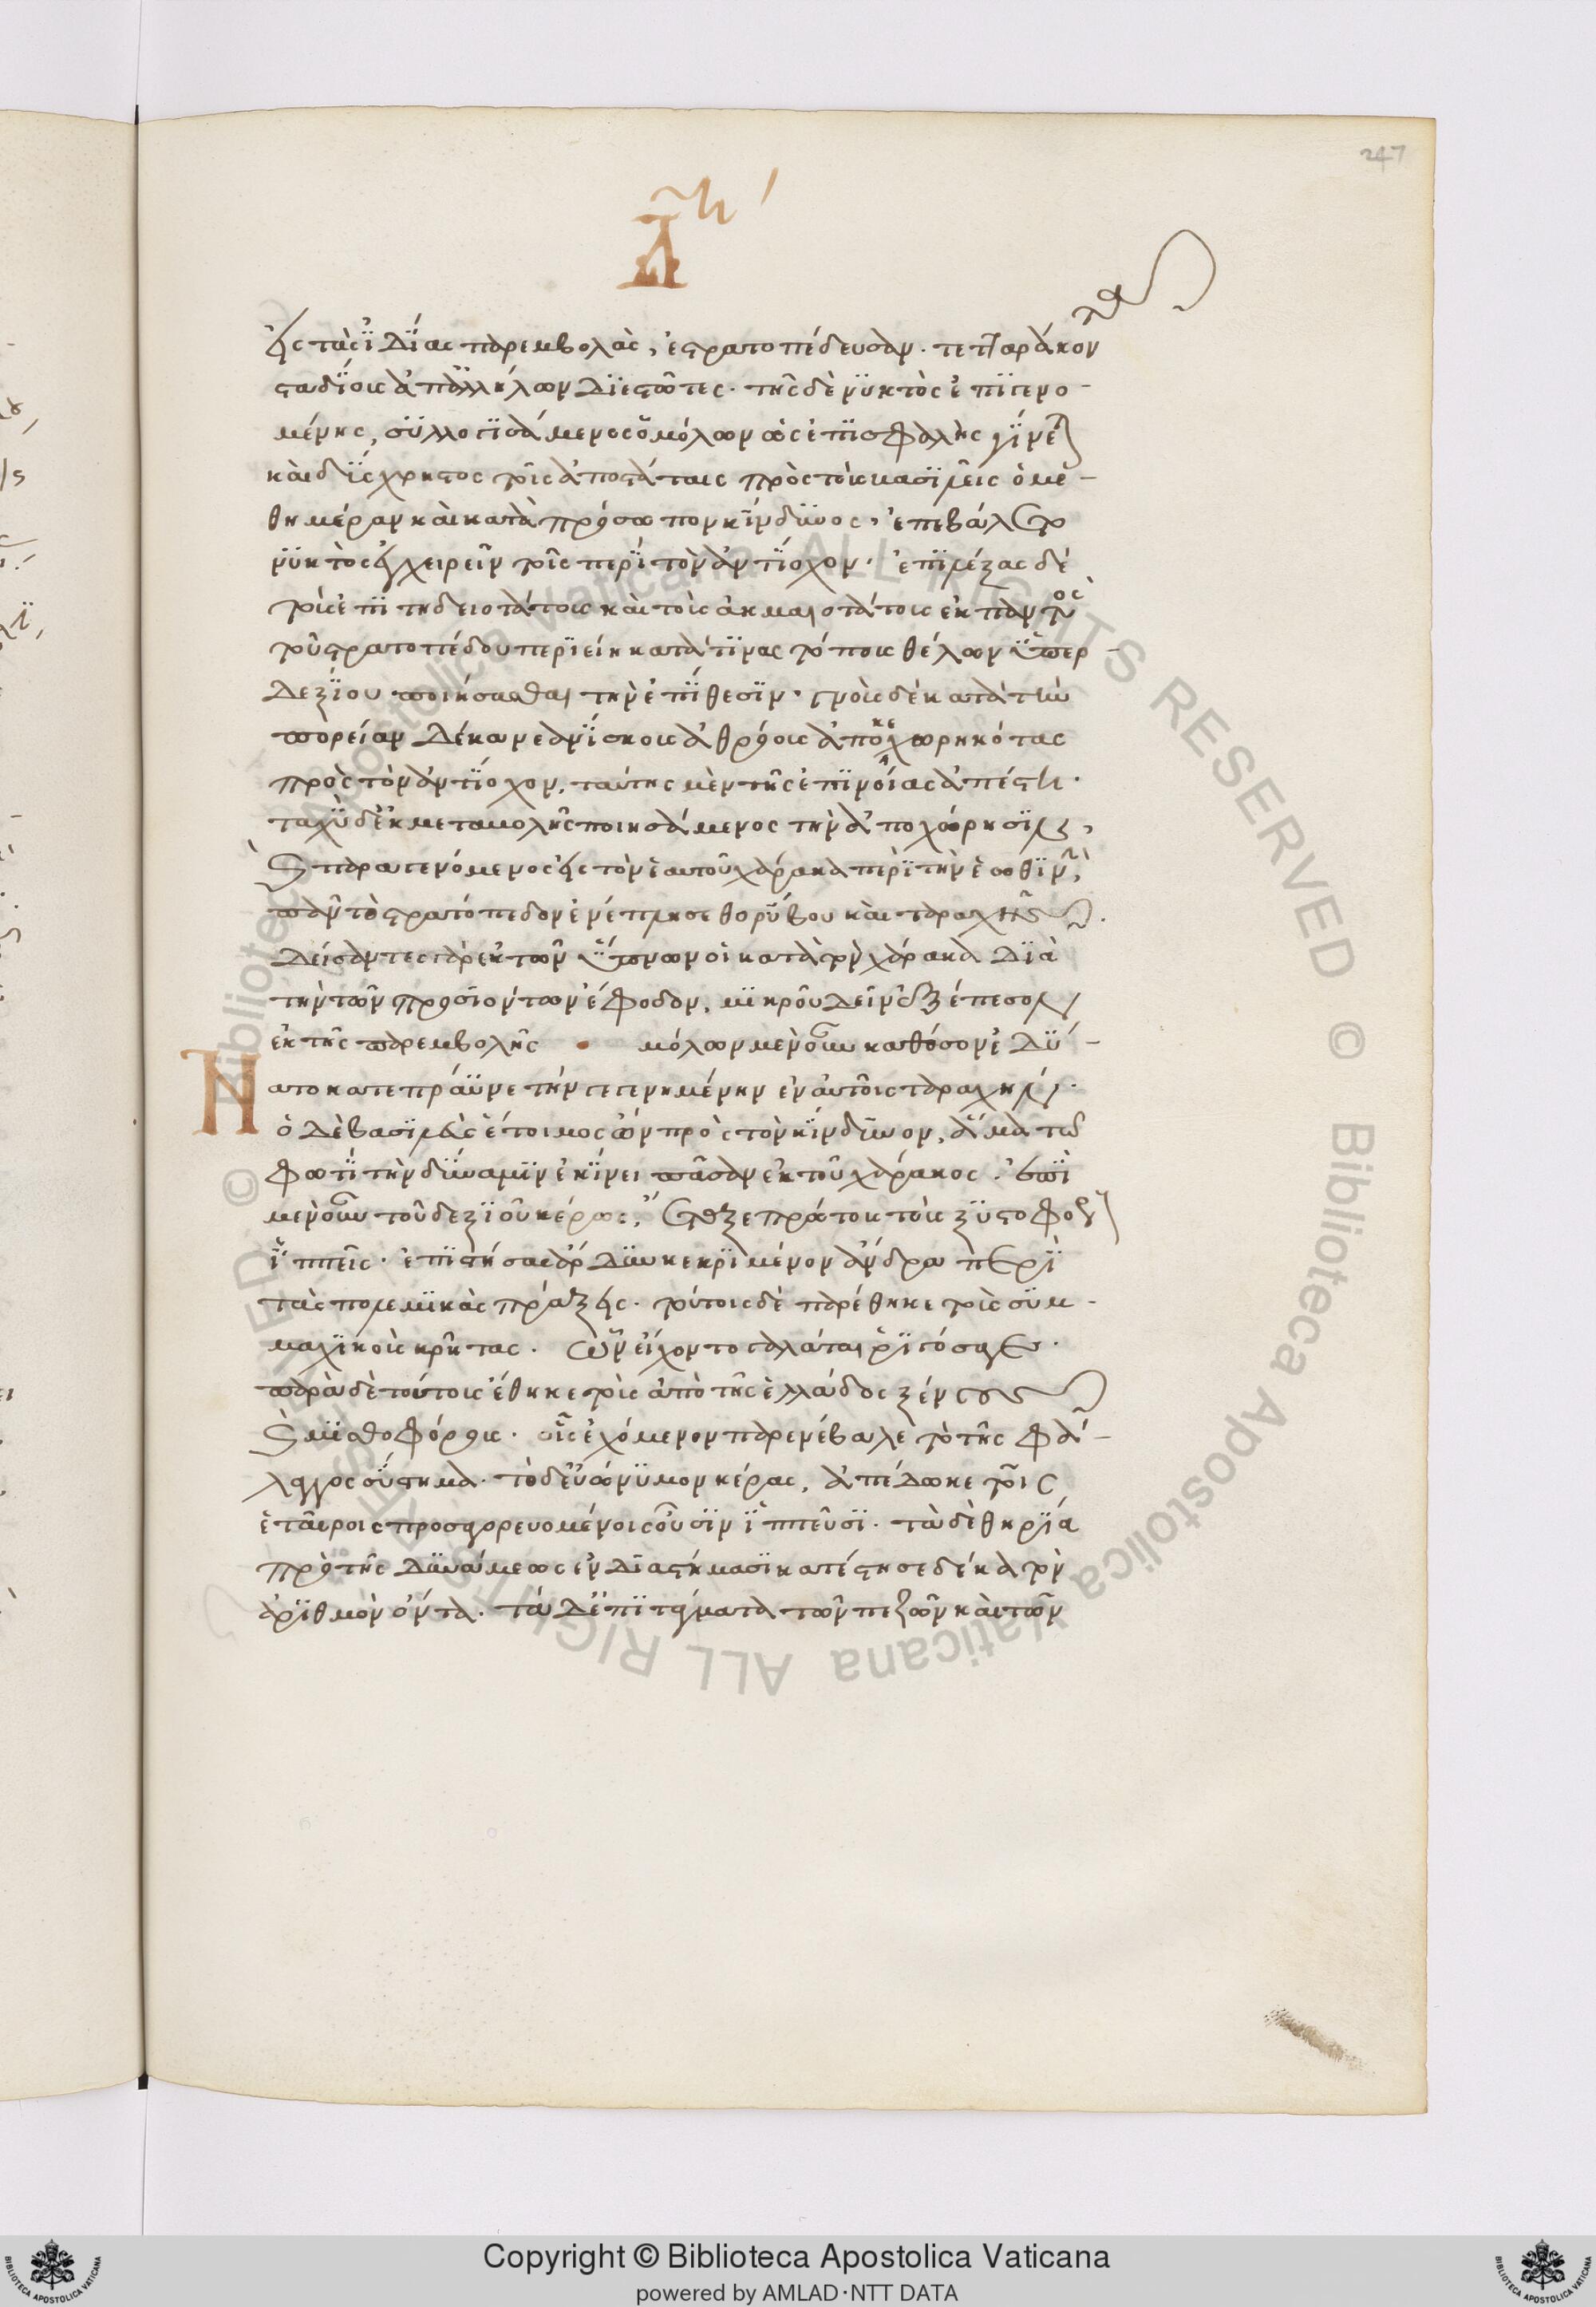 247
εἰς τὰς ἰδίας παρεμβολὰς, ἐστρατοπέδευσαν. τετταράκοντα
σταδίοις ἀπαλλήλων διεστῶτες. τῆς δὲ νυκτὸς ἐπιγενο-
μένης, συλλογισάμενος ὁ μόλων ὡς ἐπισφαλὴς γίνεται
καὶ δύσχρηστος τοῖς ἀποστάταις πρὸς τοὺς βασιλεῖς ὁ με-
θημέραν καὶ κατὰ πρόσωπον κίνδυνος, ἐπεβάλετο
νυκτὸς ἐγχειρεῖν τοῖς περὶ τὸν ἀντίοχον. ἐπιλέξας δὲ
τοὺς ἐπιτηδειοτάτους καὶ τοὺς ἀκμαιοτάτους ἐκ παντὸς
τοῦ στρατοπέδου περιείη κατά τινας τόπους θέλων ὑπερ-
δεξίου ποιήσασθαι τὴν ἐπίθεσιν. γνοὺς δὲ κατὰ τὴν
πορείαν δέκα νεανίσκους ἀθρόους ἀποκεχωρηκότας
πρὸς τὸν ἀντίοχον, ταύτης μὲν τῆς ἐπινοίας ἀπέστη.
ταχὺ δ' ἐκ μεταβολῆς ποιησάμενος τὴν ἀποχώρησιν,
καὶ παραγενόμενος εἰς τὸν ἑαυτοῦ χάρακα περὶ τὴν ἑωθινὴν,
πᾶν τὸ στρατόπεδον ἐνέπλησε θορύβου καὶ ταραχῆς.
δείσαντες γὰρ ἐκ τῶν ὕπνων οἱ κατὰ τὸν χάρακα διὰ
τὴν τῶν προσιόντων ἔφοδον, μικροῦ δεῖν ἐξέπεσον
ἐκ τῆς παρεμβολῆς · μόλων μὲν οὖν καθόσον ἐδύ-
Νατο κατεπράϋνε τὴν γεγενημένην ἐν αὐτοῖς ταραχὴν.
ὁ δὲ βασιλεὺς ἕτοιμος ὢν πρὸς τὸν κίνδυνον, ἅμα τῶ
φωτὶ τὴν δύναμιν ἐκίνει πᾶσαν ἐκ τοῦ χάρακος. ἐπὶ
μὲν οὖν τοῦ δεξιοῦ κέρως, ἔταξε πρώτους τοὺς ξυστοφόρους
ἱππεῖς. ἐπιστήσας ἄρδυν κεκριμένον ἄνδρα περὶ
τὰς πολεμικὰς πράξεις. τούτοις δὲ παρέθηκε τοὺς συμ-
μαχικοὺς κρῆτας. ὧν εἴχοντο γαλάται ῥιγόσαγες.
παρὰ δὲ τούτοις ἔθηκε τοὺς ἀπὸ τῆς ἑλλάδος ξένους
καὶ μισθοφόρους. οἷς ἐχόμενον παρενέβαλε τὸ τῆς φά-
λαγγος σύστημα. τὸ δ' εὐώνυμον κέρας, ἀπέδωκε τοῖς
ἑταίροις προσαγορευομένοις οὖσιν ἱππεῦσι. τὰ δὲ θηρία
πρὸ τῆς δυνάμεως ἐν διαστήμασι κατέστησε δέκα τὸν
ἀριθμὸν ὄντα. τὰ δ' ἐπιτάγματα τῶν πεζῶν καὶ τῶν
Copyright © Biblioteca Apostolica Vaticana
powered by AMLAD·NTT DATA